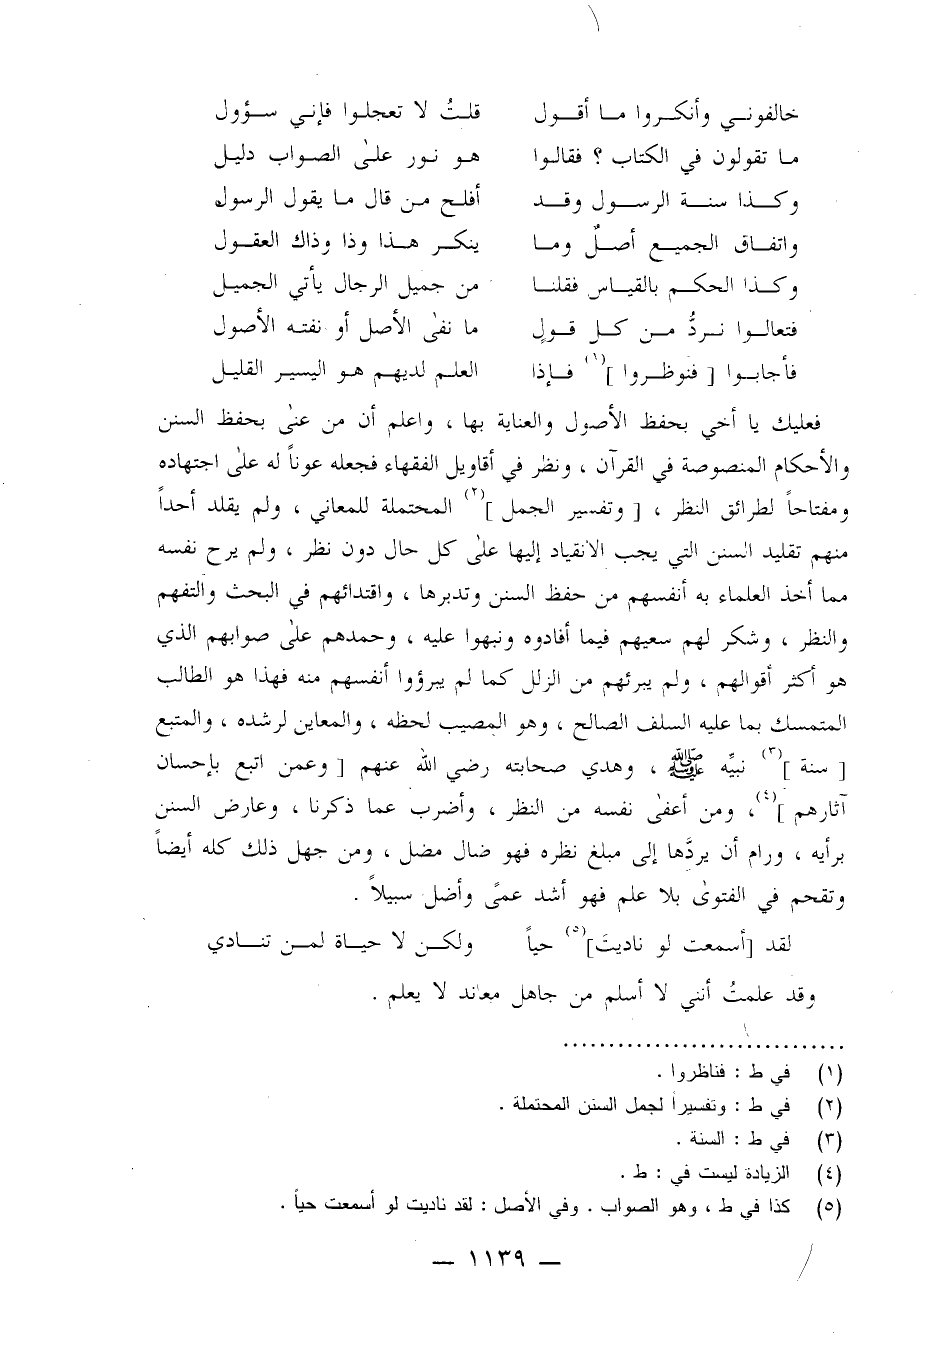 خالفوني وأنكروا ما أقول قلتُ لا تعجلوا فإني سؤول
ما تقولون في الكتاب ؟ فقالوا هو نور علىٰ الصواب دليل
وكذا سنة الرسول وقد أفلح من قال ما يقول الرسول
واتفاق الجميع أصلٌ وما ينكر هذا وذا وذاك العقول
وكذا الحكم بالقياس فقلنا من جميل الرجال يأتي الجميل
فتعالوا نردُّ من كل قولٍ ما نفىٰ الأصل أو نفته الأصول
فأجابوا [ فنوظروا ](١) فإذا العلم لديهم هو اليسير القليل
فعليك يا أخي بحفظ الأصول والعناية بها ، واعلم أن من عنىٰ بحفظ السنن
والأحكام المنصوصة في القرآن ، ونظر في أقاويل الفقهاء فجعله عوناً له علىٰ اجتهاده
ومفتاحاً لطرائق النظر ، [ وتفسير الجمل ](٢) المحتملة للمعاني ، ولم يقلد أحداً
منهم تقليد السنن التي يجب الانقياد إليها علىٰ كل حال دون نظر ، ولم يرح نفسه
مما أخذ العلماء به أنفسهم من حفظ السنن وتدبرها ، واقتدائهم في البحث والتفهم
والنظر ، وشكر لهم سعيهم فيما أفادوه ونبهوا عليه ، وحمدهم علىٰ صوابهم الذي
هو أكثر أقوالهم ، ولم يبرئهم من الزلل كما لم يبرؤوا أنفسهم منه فهذا هو الطالب
المتمسك بما عليه السلف الصالح ، وهو المصيب لحظه ، والمعاين لرشده ، والمتبع
[ سنة ](٣) نبيِّه ﷺ ، وهدي صحابته رضي الله عنهم [ وعمن اتبع بإحسان
آثارهم ](٤)، ومن أعفىٰ نفسه من النظر ، وأضرب عما ذكرنا ، وعارض السنن
برأيه ، ورام أن يردَّها إلى مبلغ نظره فهو ضال مضل ، ومن جهل ذلك كله أيضاً
وتقحم في الفتوىٰ بلا علم فهو أشد عمىً وأضل سبيلاً .
لقد [أسمعت لو ناديت](٥) حياً ولكن لا حياة لمن تنادي
وقد علمتُ أنني لا أسلم من جاهل معاند لا يعلم .
(١) في ط : فناظروا .
(٢) في ط : وتفسيراً لجمل السنن المحتملة .
(٣) في ط : السنة .
(٤) الزيادة ليست في : ط .
(٥) كذا في ط ، وهو الصواب . وفي الأصل : لقد ناديت لو أسمعت حياً .
— ١١٣٩ —